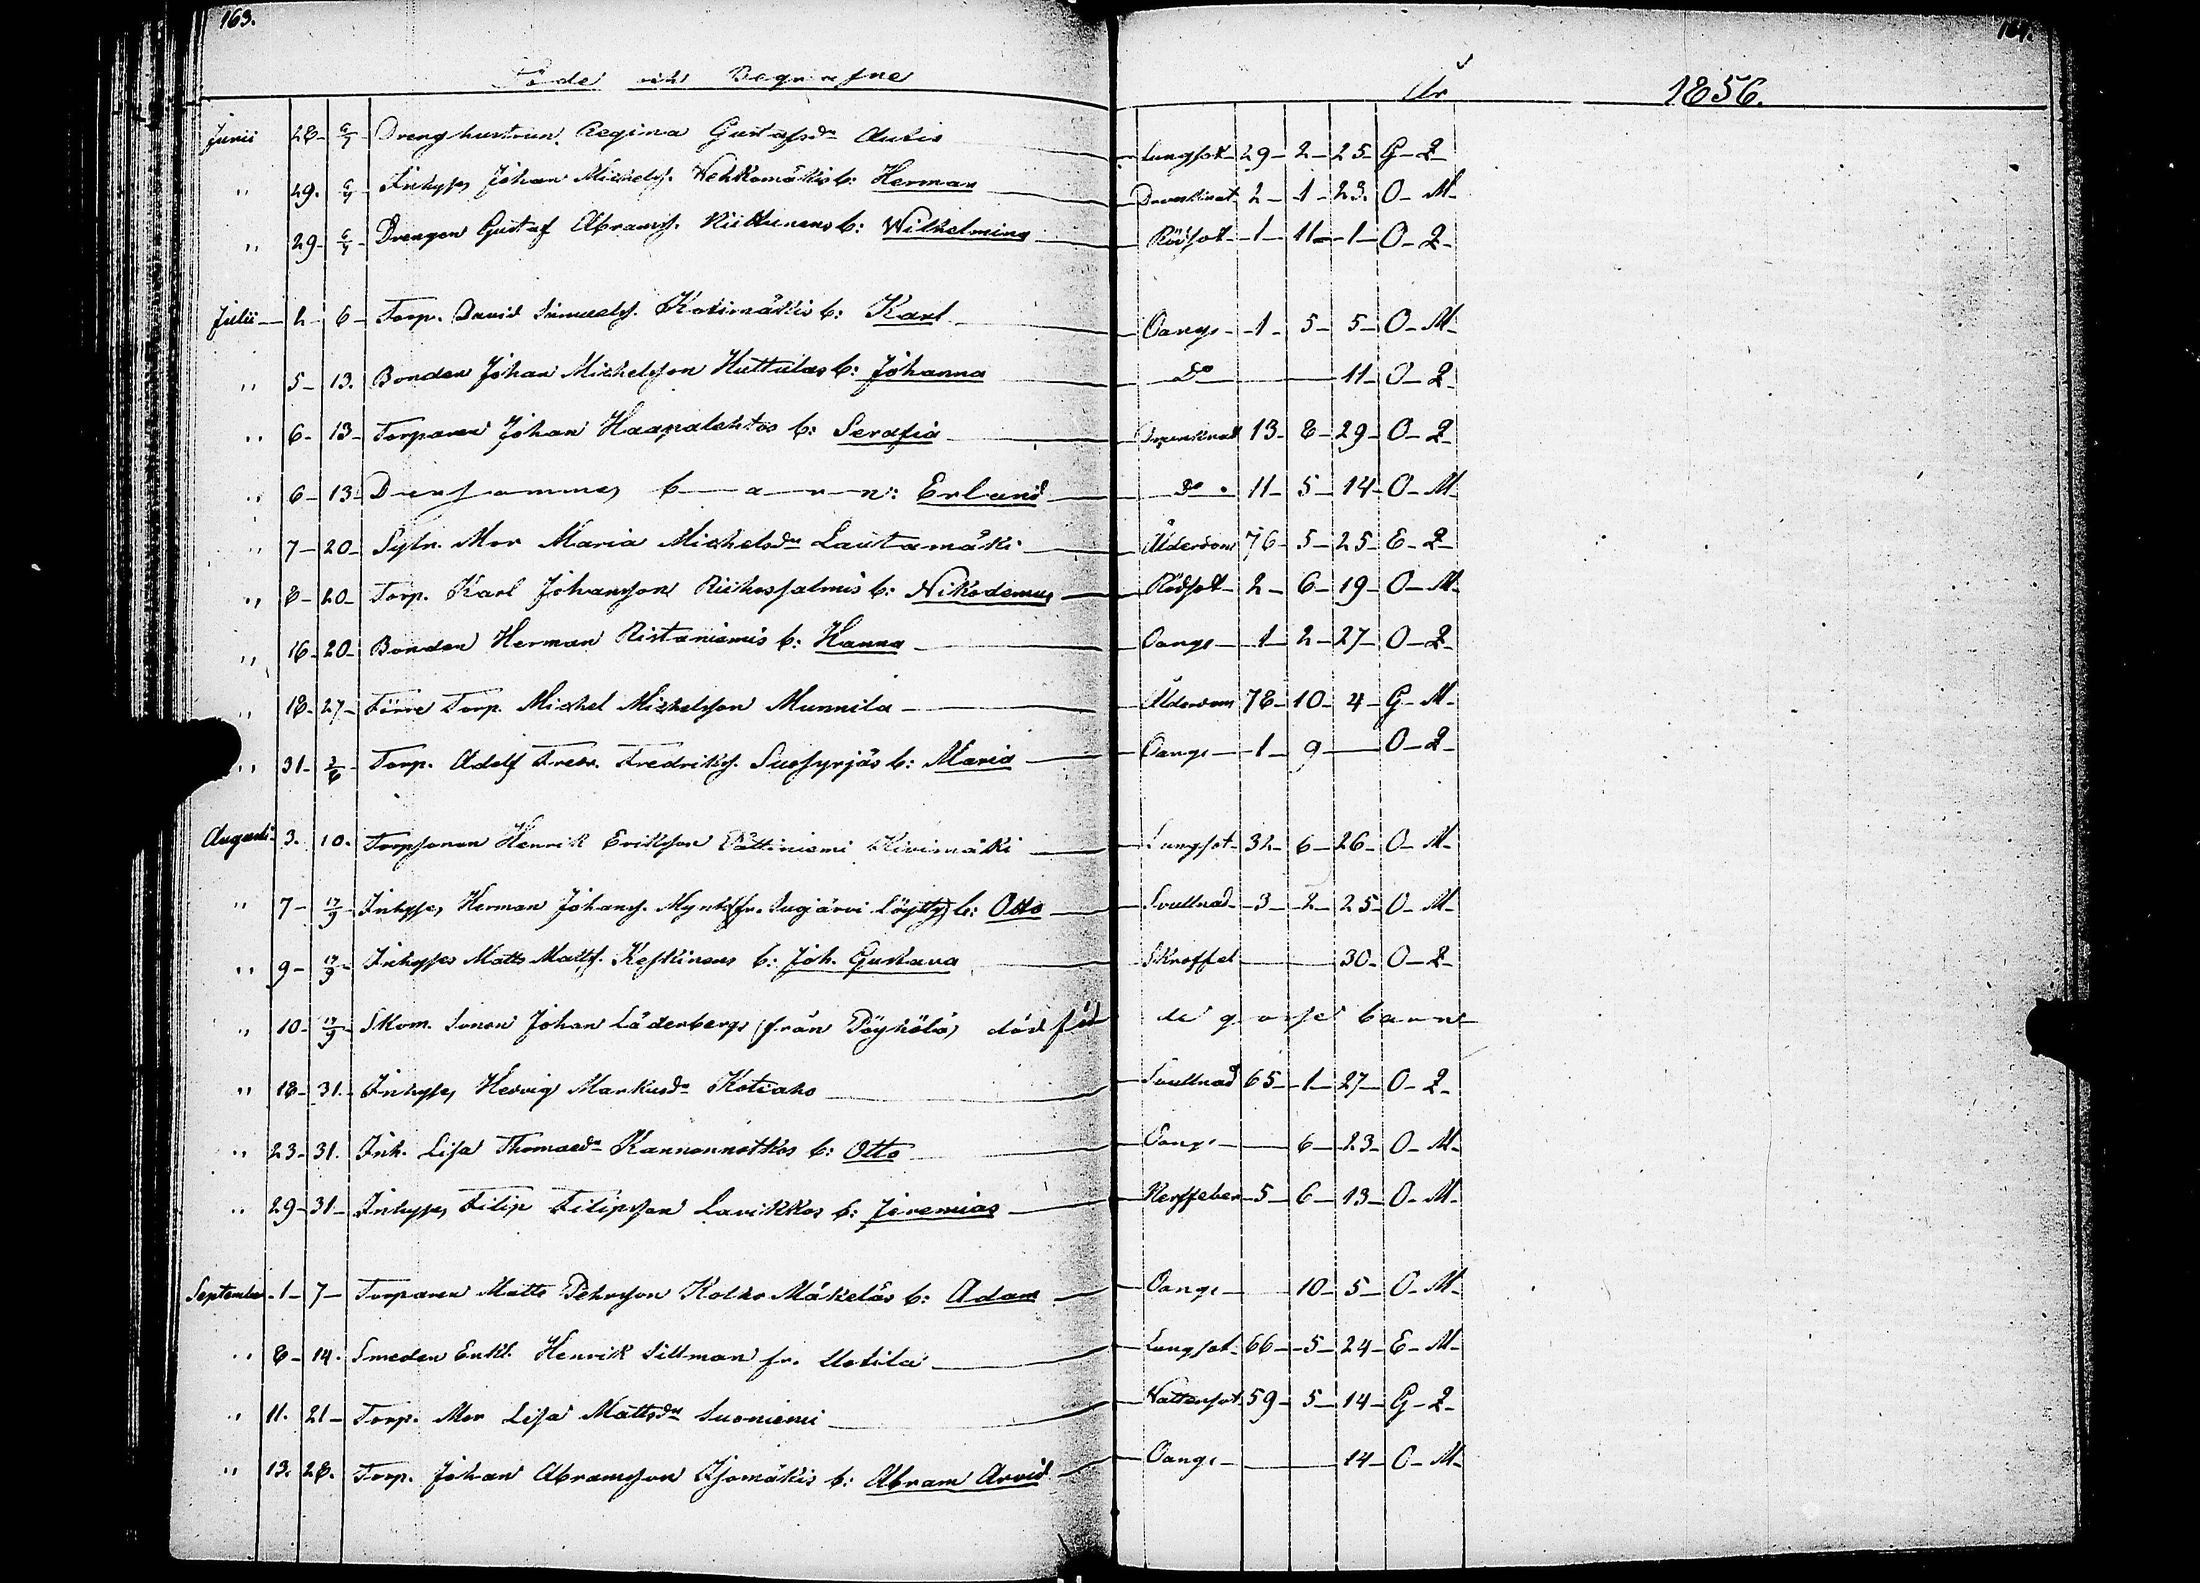 163. 164.
Döde och Begrafne År 1856.
Junii 28- 6/7 Drenghustrun Regina Gustafsdr Autio Lungsot 29- 2- 25- G- Q
" 29. 6/7 Inhyses Johan Michelss. Wehkomäkis b: Herman 2- 1- 23. O- M-
" 29- 6/7 Drengen Gustaf Abramss. b: Wilhelmina Rödsot 1- 11- 1- O- Q-
Julii 2 6- Torp. David Samuelss. Kotimäkis b: Karl Oangs- 1- 5- 5- O- M-
" 5- 13. Bonden Johan Michelsson Huttulas b: Johanna do 11- O- Q-
" 6- 13- Torparen Johan Haapalehtos b: Serafia 13- 8- 29- O- Q
" 6- 13- Densammes b-a-r-n: Erland do 11- 5- 14- O- M-
" 7- 20- Sytn. Mor Maria Michelsdr Lautamäki Ålderdom 76- 5- 25- E- Q-
" 8- 20- Torp. Karl Johansson b: Nikodemus Rödsot- 2- 6- 19- O- M-
" 16- 20- Bonden Herman Ristaniemis b: Hanna Oangs- 1- 2- 27- O- Q-
" 18- 27- Förre Torp. Michel Michelsson Munnila Ålderdom 78- 10- 4- G- M-
" 31- 3/8 Torp. Adolf Fredr. Fredrikss. Suosyrjäs b: Maria Oangs- 1- 9- O- Q-
Augusti 3. 10. Torpsonen Henrik Eriksson Pättiniemi Kivimäki Lungsot- 32- 6- 26- O- M-
" 7- 17/9 Inhyses Herman Johanss. (fr. Löytty) b: Otto Svullnad- 3- 2- 25- O- M-
" 9- 17/9 Inhyses Matts Mattss. Keskinens b: Joh. Gustava Skroffel 30- O- Q-
" 10- 17/9 Skom. Sonen Johan Läderbergs (från Pöyhölä) dödföd de gosse barn
" 18- 31. Inhyses Hedvig Markusdr Kotiaho Svullnad 65- 1- 27- O- Q-
" 23- 31. Inh. Lisa Thomasdr b: Otto Oangs- 6- 23- O- M-
" 29- 31- Inhyses Filip Filipsson Lavikkos b: Jeremias Nerffeber- 5- 6- 13- O- M-
September- 1- 7- Torparen Matts Pehrsson Kolho Mäkeläs b: Adam Oangs- 10- 5- O- M-
" 8- 14. Smeden Enkl. Henrik Sillman fr. Uotila Lungsot- 66- 5- 24- E- M-
" 11. 21- Torp. Mor Lisa Mattsdr Suoniemi Wattensot 59- 5- 14- G- Q-
" 13. 28. Torp. Johan Abramsson Isomäkis b: Abram Arvid Oangs- 14- O- M-